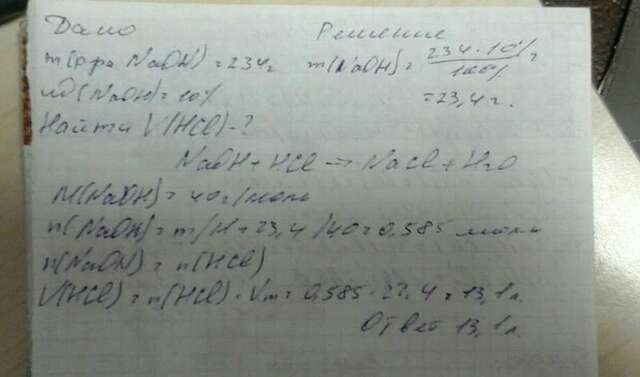 Дано Решение
m(р-ра NaOH) = 234г m(NaOH) = 234·10%/100% =
ω(NaOH) = 10% = 23,4 г.
Найти V(HCl) - ?
NaOH + HCl → NaCl + H2O
M(NaOH) = 40 г/моль
n(NaOH) = m/M = 23,4/40 = 0,585 моль
n(NaOH) = n(HCl)
V(HCl) = n(HCl)·Vm = 0,585·22,4 = 13,1 л.
Ответ 13,1 л.